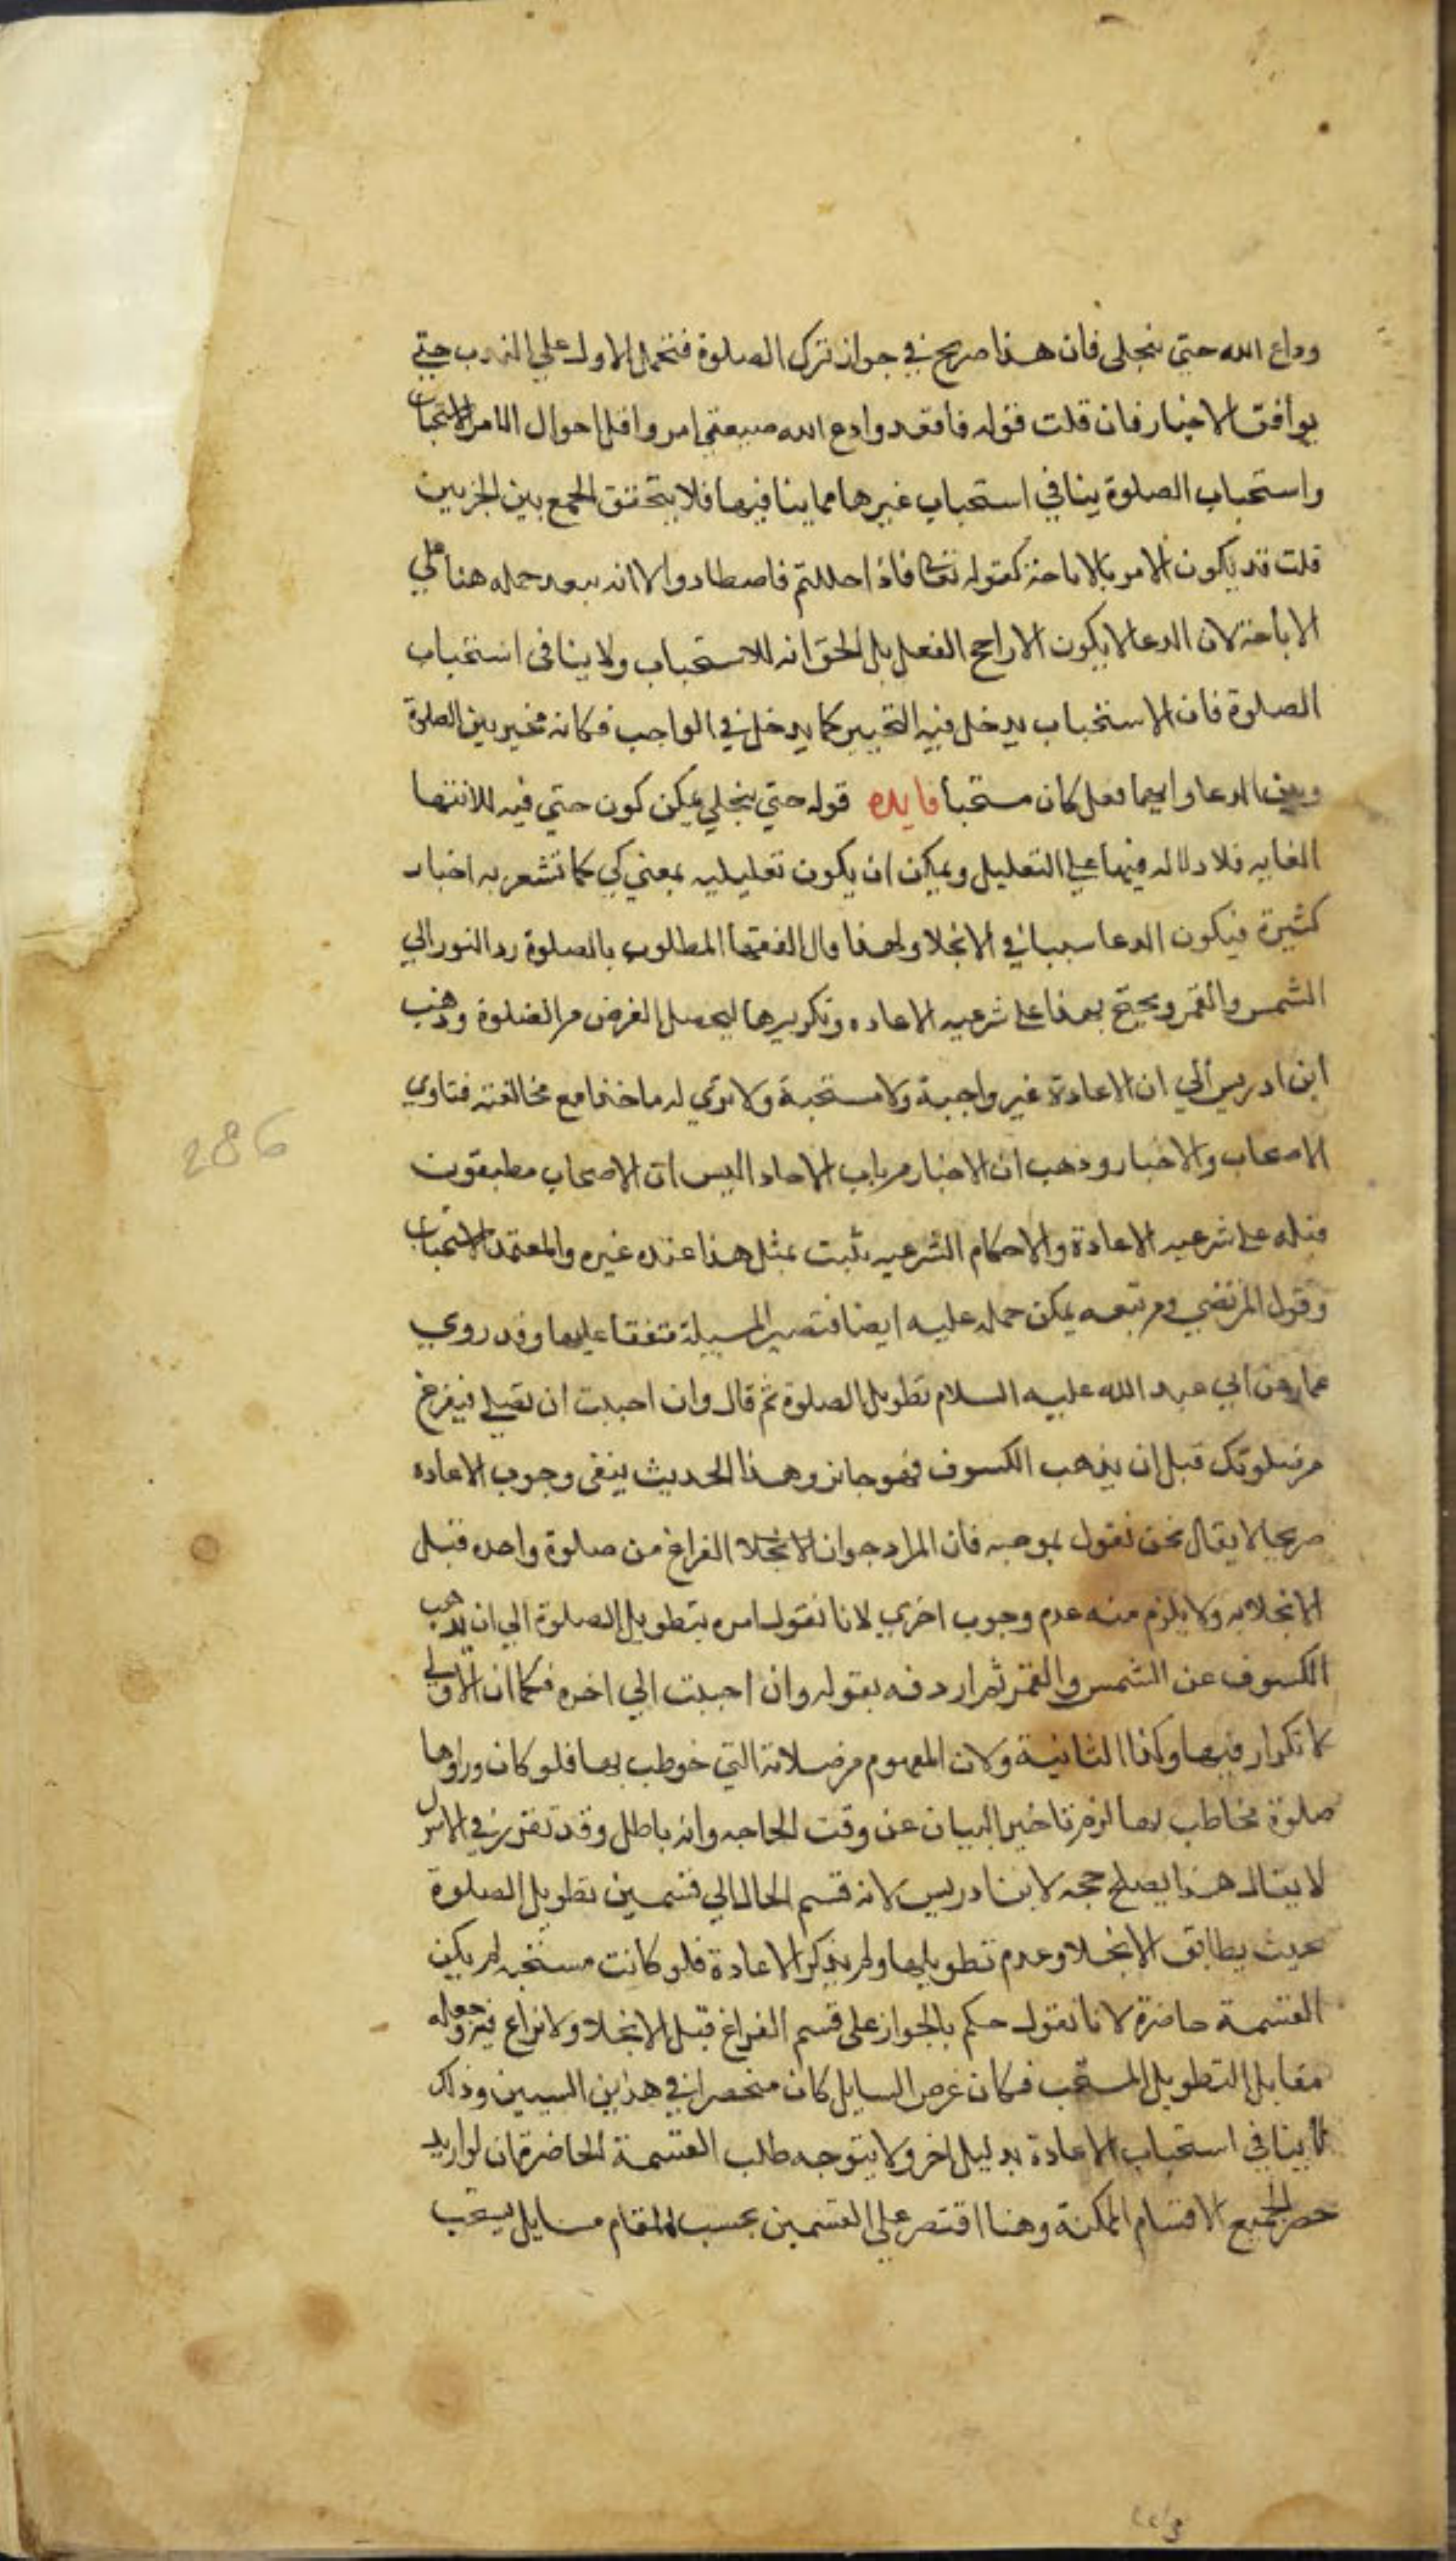 وداع الله حتى ينجلى فان هذا صريح في جواز ترك الصلوة فتحمل الاول على الندب حتى
يوافق الاخبار فان قلت قوله فاقعد وادع الله صيغتى امر واقل احوال الامر الاستحباب
واستحباب الصلوة ينافي استحباب غيرها مما ينافيها فلا يتحقق الجمع بين الخبرين
قلت قد يكون الامر بالاباحة كقوله تعالى فاذا حللتم فاصطادوا الا انه يبعد حمله هنا على
الاباحة لان الدعا لا يكون الا راجح الفعل بل الحق انه للاستحباب ولا ينافى استحباب
الصلوة فان الاستحباب يدخل فيه التخيير كما يدخل في الواجب فكانه مخير بين الصلوة
وبين الدعا وايهما فعل كان مستحبا فايده قوله حتى ينجلي يمكن كون حتي فيه للانتها
الغايه فلا دلاله فيها على التعليل ويمكن ان يكون تعليليه بمعني كي كما تشعر به اخبار
كثيرة فيكون الدعا سببا في الانجلا ولهذا قال الفقها المطلوب بالصلوة رد النور الي
الشمس والقمر ويحتج بهذا على شرعيه الاعاده وتكريرها ليحصل الغرض من الصلوة وذهب
ابن ادريس الي ان الاعادة غير واجبة ولا مستحبة ولا نري له ماخذا مع مخالفته فتاوي
الاصحاب والاخبار وذهب ان الاخبار من باب الاحاد اليس ان الاصحاب مطبقون
قبله على شرعيه الاعادة والاحكام الشرعيه يثبت بمثل هذا عنده غيره والمعتمد الاستحباب
وقول المرتضي ومن تبعه يمكن حمله عليه ايضا فتصير المسيلة متفقا عليها وقد روي
عمار عن ابي عبد الله عليه السلام تطويل الصلوة ثم قال وان احببت ان تصلي فيفرغ
من صلوتك قبل ان يذهب الكسوف فهو جايز وهذا الحديث ينفى وجوب الاعاده
صريحا لا يقال نحن نقول بموجبه فان المراد جواز الانجلا الفراغ من صلوة واحده قبل
الانجلا به ولا يلزم منه عدم وجوب اخري لانا نقول امره بتطويل الصلوة الي ان يذهب
الكسوف عن الشمس والقمر ثم اردفه بقوله وان احببت الي اخره فكما ان الاولى
لا تكرار فيها وكذا الثانية ولان المفهوم من صلاته التي خوطب بها فلو كان وراوها
صلوة مخاطب بها لزم تاخير البيان عن وقت الحاجه وانه باطل وقد تقرر في الاصول
لا يقال هذا يصلح حجه لابن ادريس لانه قسم الحال الي قسمين تطويل الصلوة
بحيث يطابق الانجلا وعدم تطويلها ولم يذكر الاعادة فلو كانت مستحبه لم يكن
القسمة حاضرة لانا نقول حكم بالجواز على قسم الفراغ قبل الانجلا ولا نزاع فيه وجعله
مقابل التطويل المستحب فكان غرض السايل كان منحصرا في هذين السيين وذلك
لا ينافي استحباب الاعادة بدليل اخر ولا يتوجه طلب القسمة الحاضرة فان لو اريد
حصر الجميع الاقسام الممكنة وهنا اقتصر على القسمين بحسب المقام مسايل يستحب
286